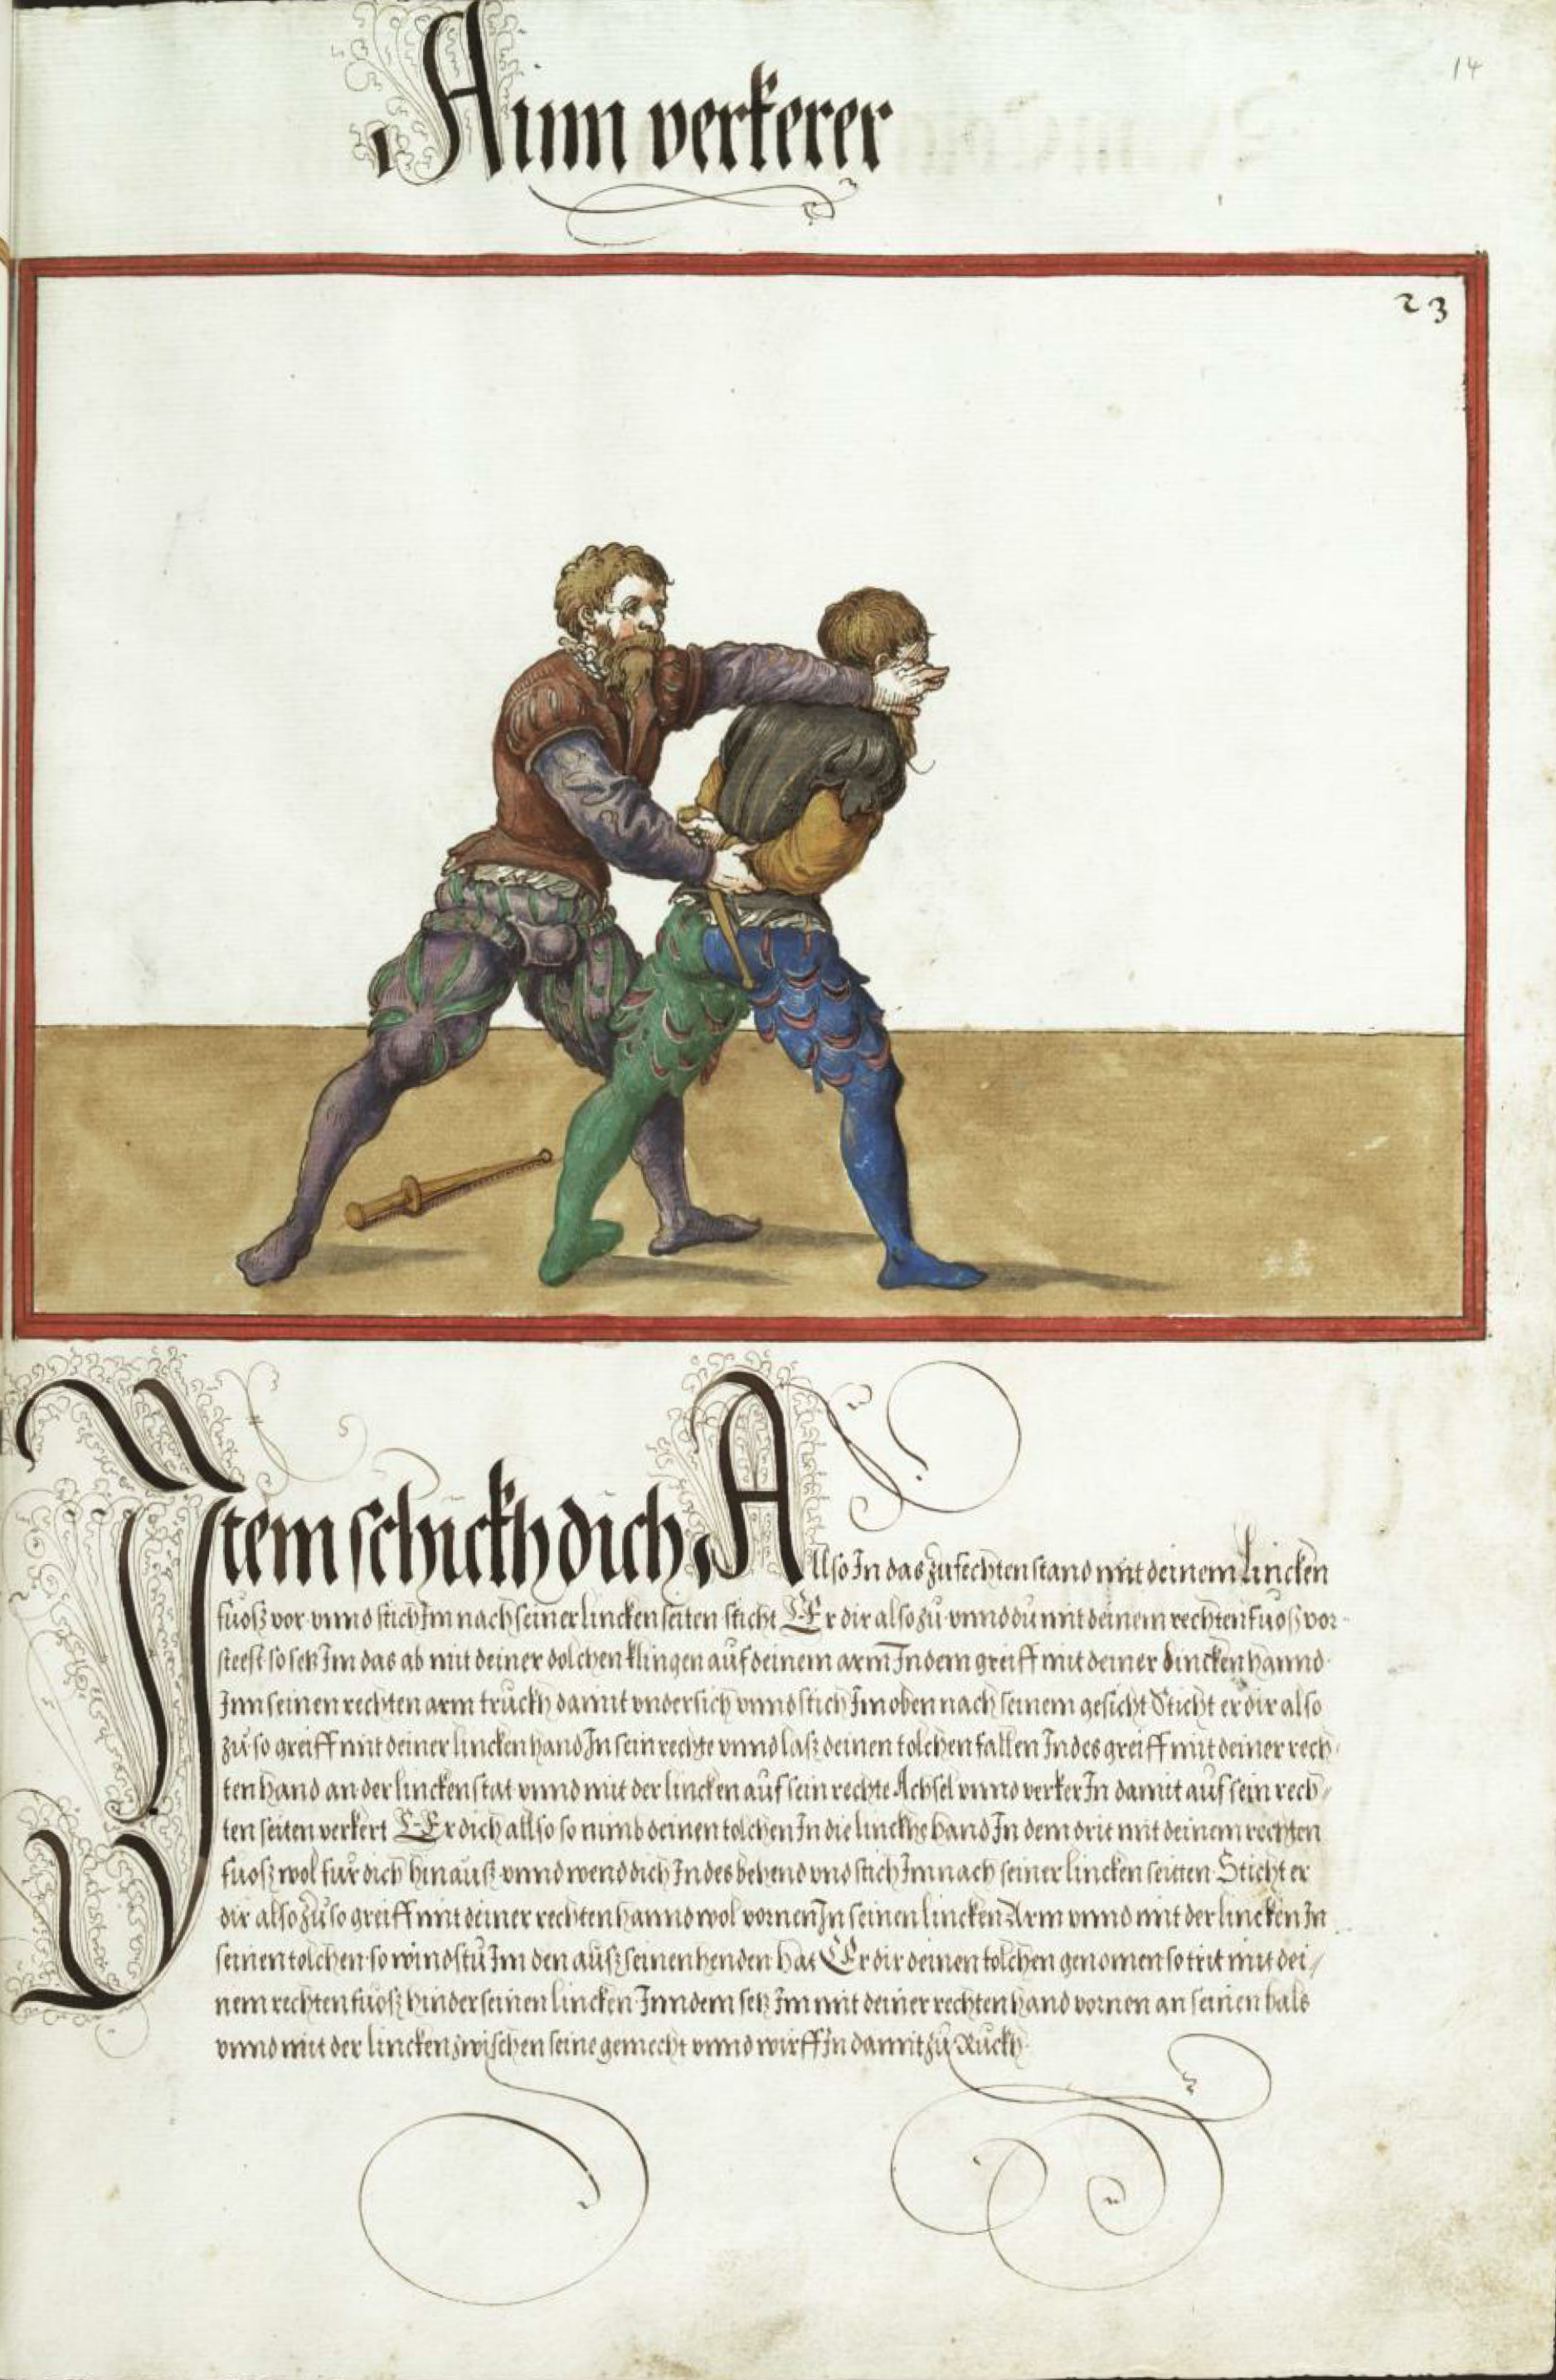 14
Ainn verkerer
23
Item schickh dich Allso In das zufechten stand mit deinem Lincken
fuosz vor vnnd stich Im nach seiner lincken seiten sticht Er dir also zů vnnd dů mit deinem rechten fuosz vor
steest so setz Im das ab mit deiner dolchen klingen auf deinem arm Indem greiff mit deiner Lincken hannd
Inn seinen rechten arm truckh damit vndersich vnnd stich Im oben nach seinem gesicht Sticht er dir also
zů so greiff mit deiner lincken hand In sein rechte vnnd lasz deinen tolchen fallen Indes greiff mit deiner rech
ten hand an der lincken stat vnnd mit der lincken auf sein rechte Achsel vnnd verker In damit auf sein rech/
ten seiten verkert Er dich allso so nimb deinen tolchen In die linckhe hand In dem drit mit deinem rechten
fuosz wol für dich hinausz vnnd wend dich Indes behend vnd stich Im nach seiner lincken seitten Sticht er
dir also zů so greiff mit deiner rechten hannd wol vornen In seinen lincken Arm vnnd mit der lincken In
seinen tolchen so windstu Im den ausz seinen henden hat Er dir deinen tolchen genomen so trit mit dei/
nem rechten fuosz hinder seinen lincken Inndem setz Im mit deiner rechten hand vornen an seinen hals
vnnd mit der lincken zwischen seine gemecht vnnd wirff In damit zů Ruckh